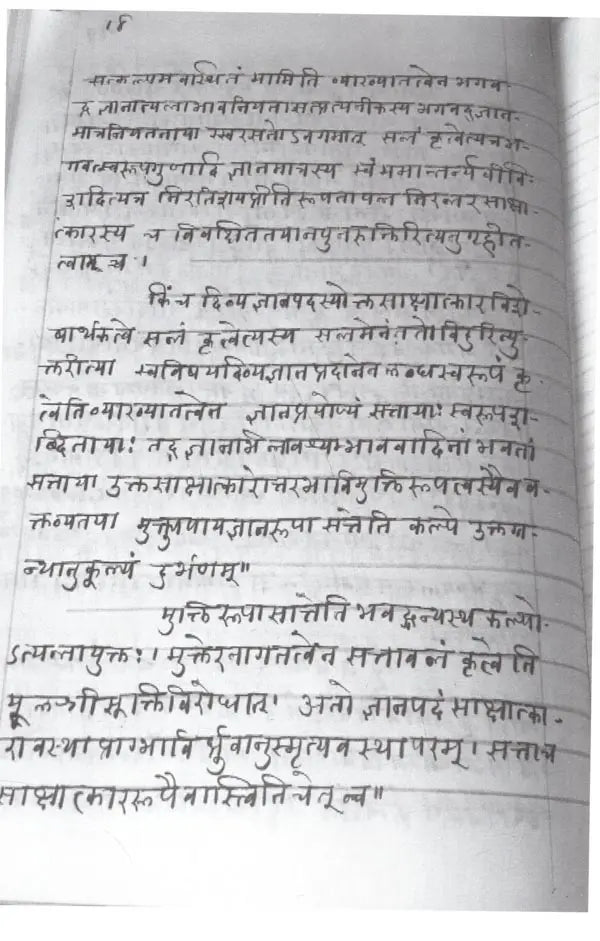 १८
सत्कल्पमवस्थितं मामिति व्याख्यातत्वेन भगव-
द्ज्ञानात्यलाभावनियतासत्प्रत्यनीकस्य भगवद्ज्ञान-
मात्रनियततायाः स्वरसतोऽवगमात् सत्तां कृत्वेत्यत्र भ-
गवत्स्वरूपगुणादि ज्ञानमात्रस्य
दादित्यत्र निरतिशयप्रीतिरूपतापन्न निरन्तरसाक्षा-
त्कारस्य च विवक्षिततया न पुनरुक्तिरित्यनुगृहीत-
त्वाच्च ।
किंच दिव्यज्ञानपदस्योक्तसाक्षात्कारविशे-
षार्थकत्वे सत्तां कृत्वेत्यस्य सन्तमेनं ततो विदुरित्यु-
क्तरीत्या स्वविषयदिव्यज्ञानप्रदानेन लब्धस्वरूपं कृ-
त्वेति व्याख्यातत्वेन ज्ञानप्रयोज्यं सत्तायाः स्वरूपशा-
ब्दितायाः तद्ज्ञाना वादिनां भवतां
सत्ताया उक्तसाक्षात्कारोत्तरभाविमुक्तिरूपत्वस्यैव व-
क्तव्यतया मुक्त्युपायज्ञानरूपा सत्तेति कल्पे उक्तम-
न्यानुकूल्यं दुर्भणम्॥
मुक्तिरूपा सत्तेति भवद्ग्रन्थस्थ कल्पो-
ऽत्यन्तायुक्तः। मुक्तेरनागतत्वेन सत्तावलं कृत्वेति
मूलश्रीसूक्तिविरोधात्। अतो ज्ञानपदं साक्षात्का-
रावस्थाप्राग्भाविर्ध्रुवानुस्मृत्यवस्थापरम्। सत्ता च
साक्षात्काररूपैवास्त्विति चेत् न्व॥